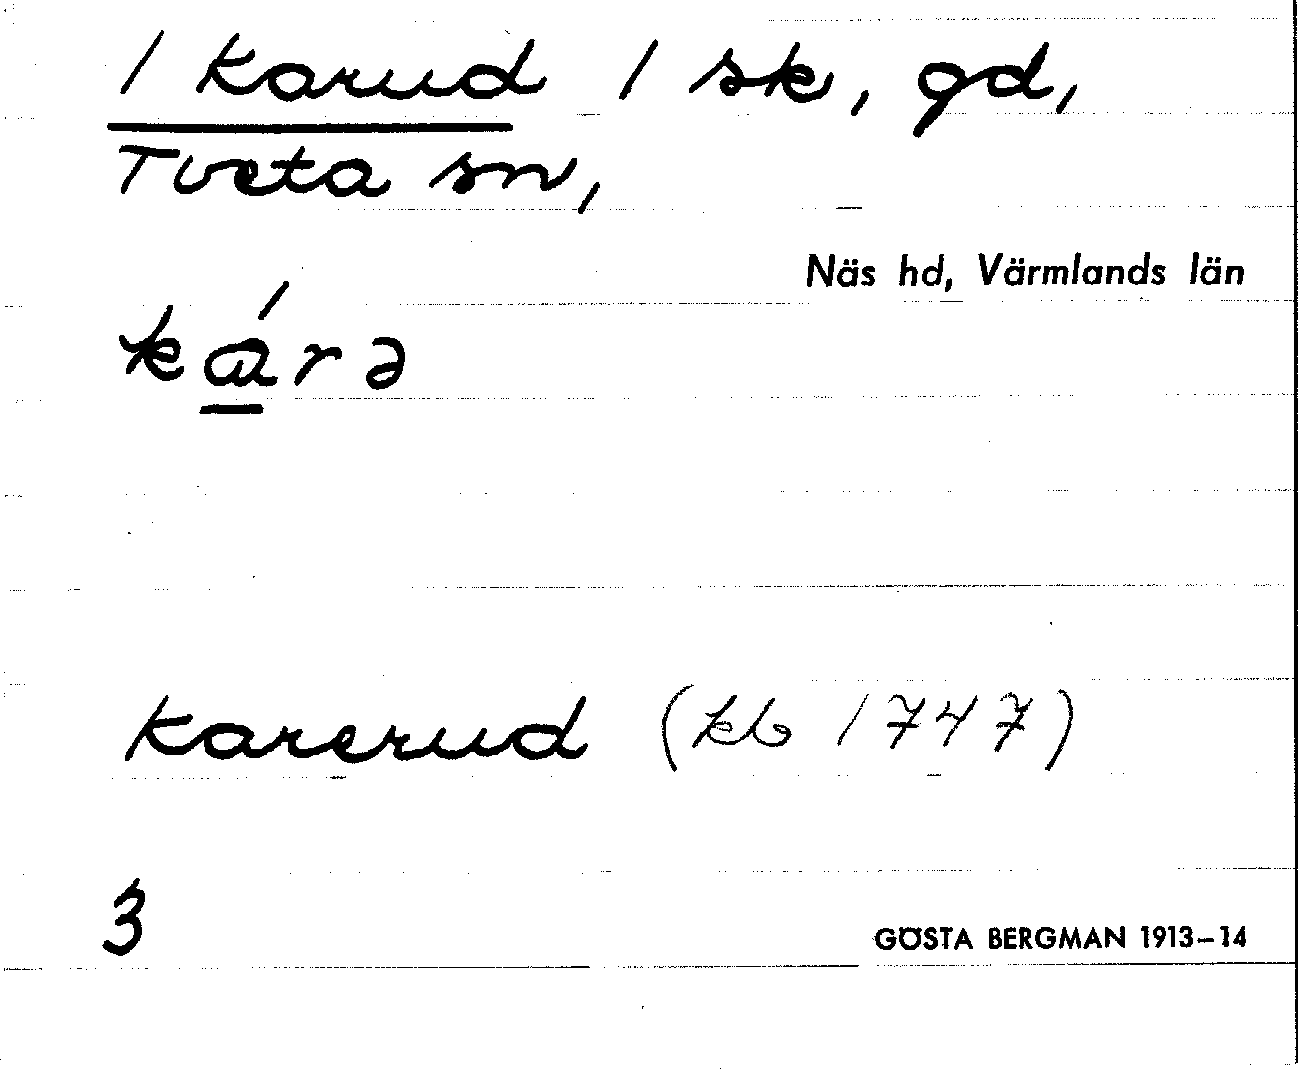 / Karud / sk, gd,
Tveta sn,
Näs hd, Värmlands län
ká̱rə
Karerud (kb 1747)
3
GÖSTA BERGMAN 1913–14